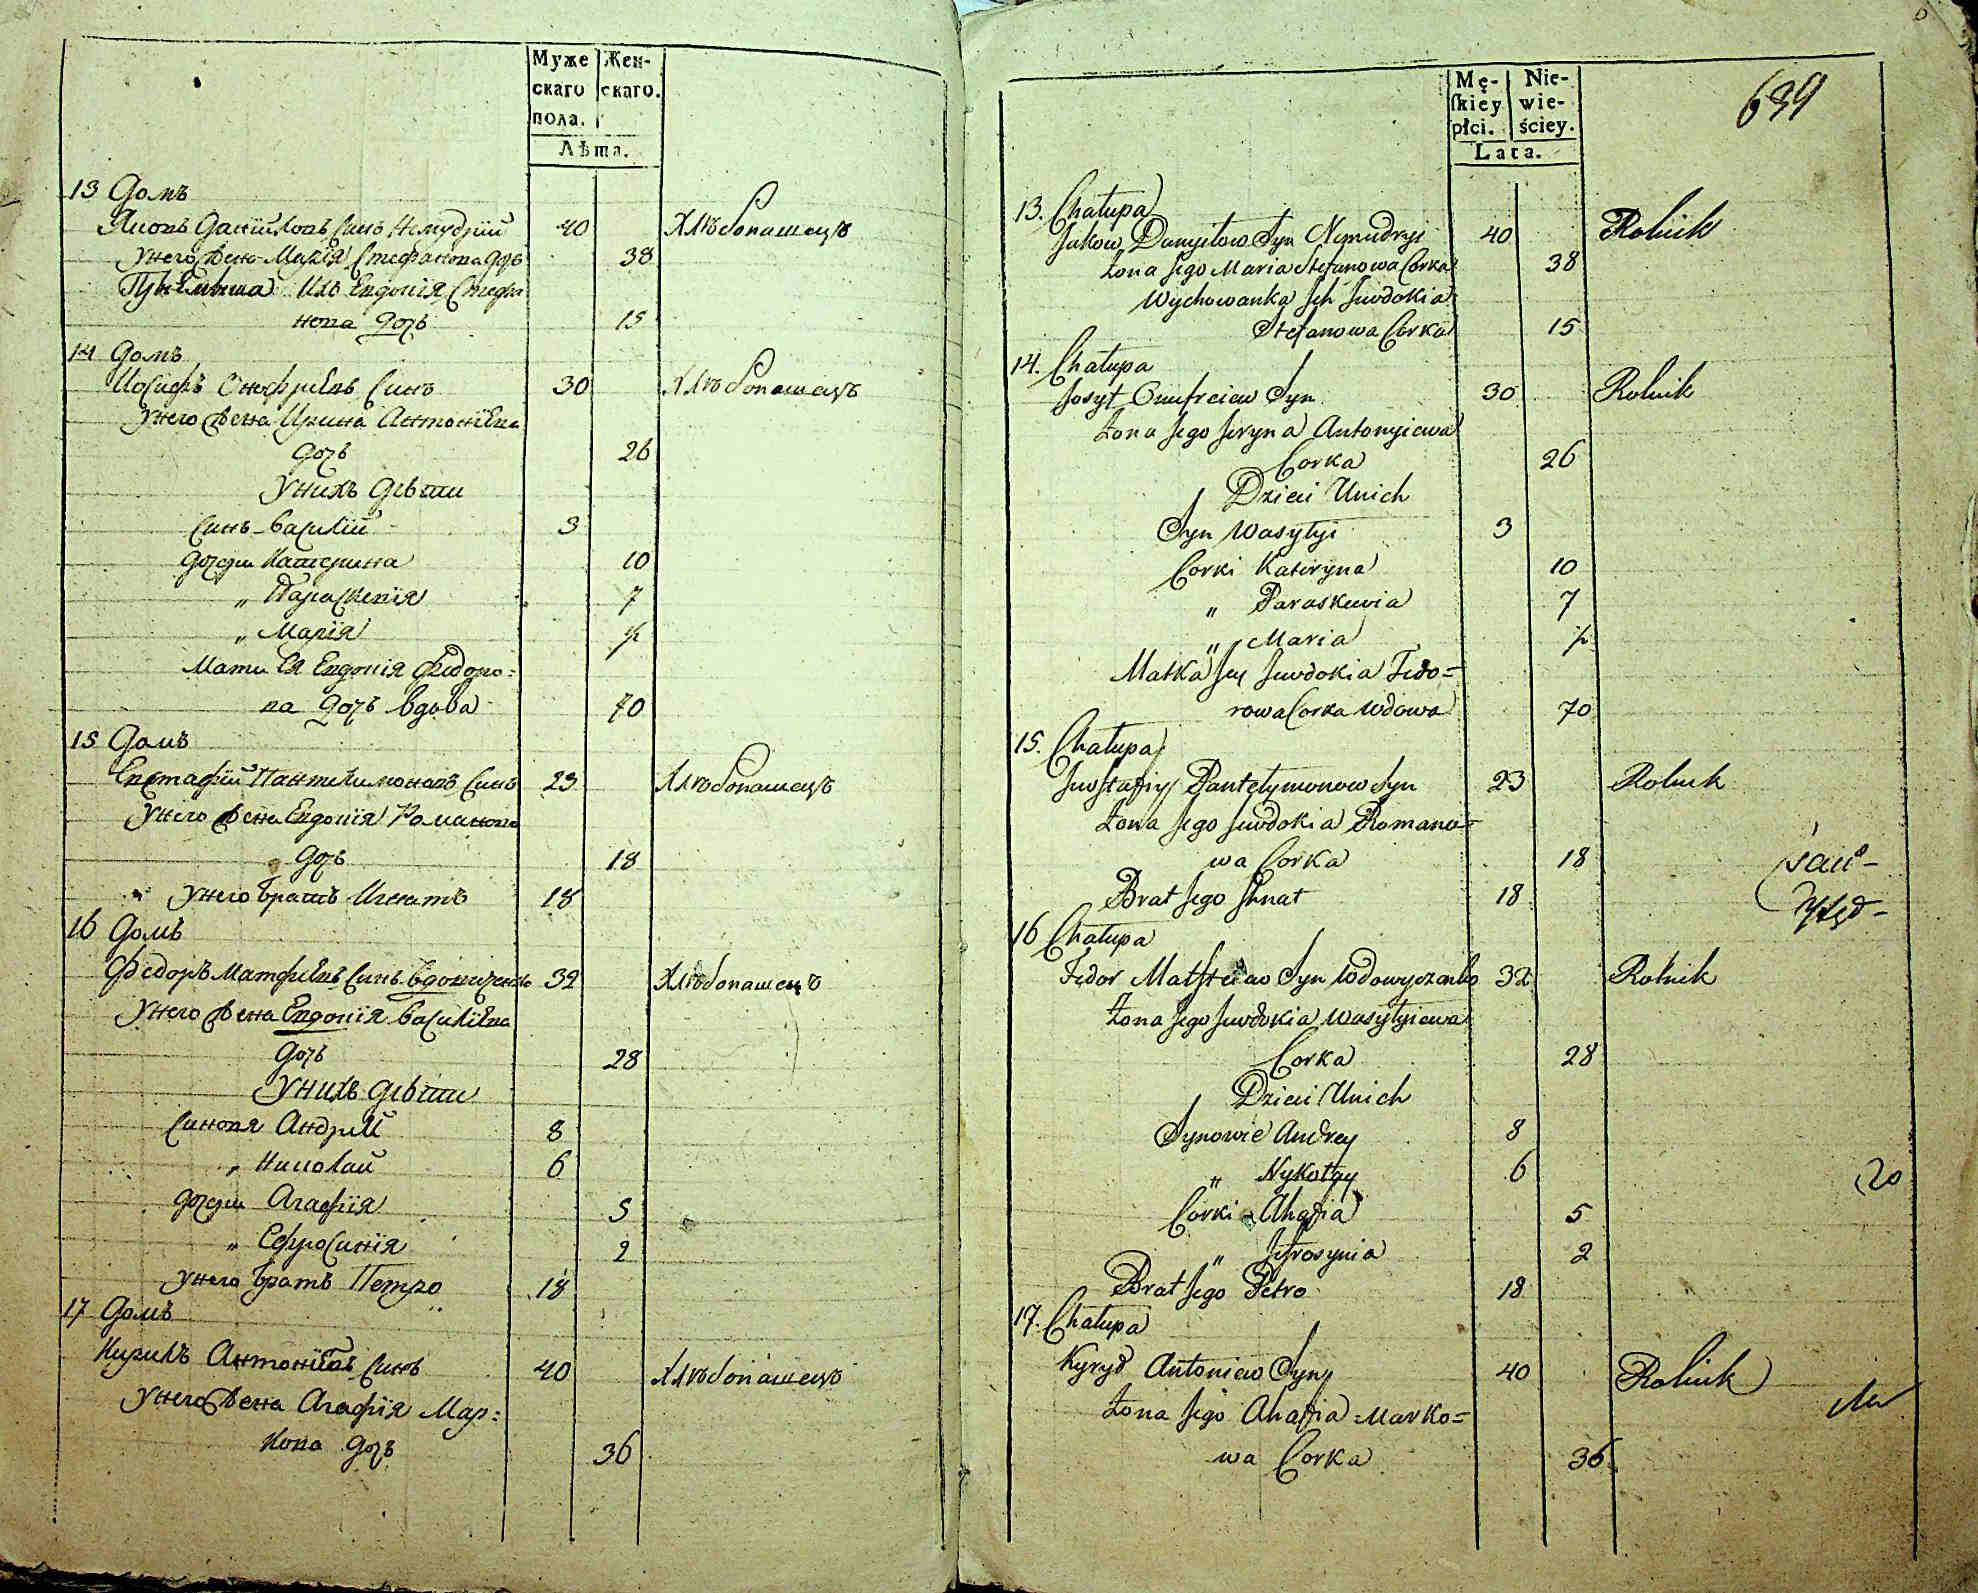 Муже
скаго
пола.
Жен-
скаго.
Лѣта.
13 Домъ
Яковъ Данііловъ Синъ Немудрій 40 Хлѣбопашецъ
Унего Жена Марія Стефанова дочь 38
Пріемыша Ихъ Евдокія Стефа
нова дочь 15
14 Домъ
Иосифъ Онофріевъ Синъ 30 Хлѣбопашецъ
Унего Жена Ирина Антоніева
дочь 26
Унихъ дѣти
Синъ Василій 3
дочери Катерина 10
„ Параскевія 7
„ Марія ½
Мати Ея Евдокія Федоро=
ва дочь вдова 70
15 Домъ
Евстафій Пантелимоновъ Синъ 23 Хлѣбопашецъ
Унего Жена Евдокія Романова
дочь 18
Унего братъ Игнатъ 18
16 Домъ
Федоръ Матфіевъ Синъ Вдовиченко 32 Хлѣбопашецъ
Унего Жена Евдокія Василіева
дочь 28
Унихъ дѣти
Синовя Андрій 8
„ Николай 6
дочери Агафія 5
„ Єфросинія 2
Унего братъ Петро 18
17 Домъ
Кирилъ Антоніевъ Синъ 40 Хлѣбопашецъ
Унего Жена Агафія Мар=
кова дочь 36
Mę-
skiey
płci.
Nie-
wie-
ściey.
Lata.
639
13. Chałupa
Jakow Danyiłow Syn Nymudryi 40 Rolnik
Żona Jego Maria Stefanowa Corka 38
Wychowanka Jch Juwdokia
Stefanowa Corka 15
14. Chałupa
Josyf Onufreiew Syn 30 Rolnik
Żona Jego Jeryna Antonyiewa
Corka 26
Dzieci Unich
Syn Wasylyi 3
Corki Kateryna 10
„ Paraskewia 7
„ Maria ½
Matka Jey Juwdokia Fedo=
rowa Corka Wdowa 70
15. Chałupa
Juwstafiy Pantełymonow Syn 23 Rolnik
Żona Jego Juwdokia Romano=
wa Corka 18
Brat Jego Hnat 18
16 Chałupa
Fedor Matfteiew Syn Wdowyczenko 32 Rolnik
Żona Jego Juwdokia Wasylyiewa
Corka 28
Dzieci Unich
Synowie Andrey 8
„ Nykołay 6
20
Corki Ahafia 5
„ Jefrosynia 2
Brat Jego Petro 18
17. Chałupa
Kyrył Antoniew Syn 40 Rolnik
Żona Jego Ahafia Marko=
wa Corka 36